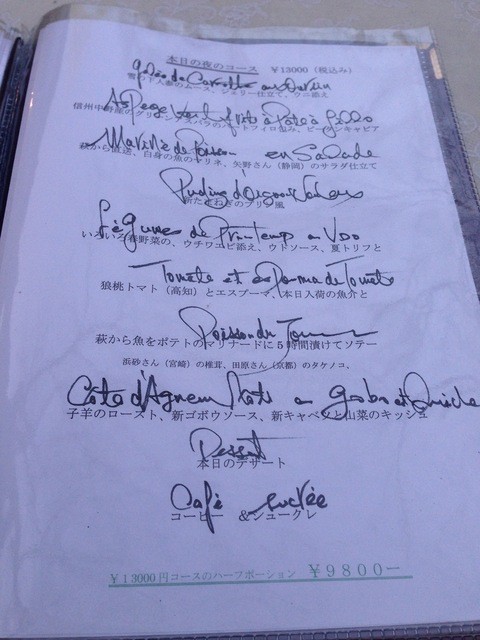 本日の夜のコース ¥13000（税込み）
gelée de Carotte aux oursin
雪の下人参のムース、ジュリー仕立て、ウニ添え
Asperge vert frite à Pâte à fillo
信州中野産のグリーンアスパラのパートフィロ包み、ビーツンキャビア
Mariné de Poisson en Salade
萩から直送、白身の魚のマリネ、矢野さん（静岡）のサラダ仕立て
Puding d'Oignon
新たまねぎのプリン風
Légumes de Printemps au Udo
いろいろ春野菜の、ウチワエビ添え、ウドソース、夏トリフと
Tomate et esporma de Tomate
狼桃トマト（高知）とエスプーマ、本日入荷の魚介と
Poisson du Jour
萩から魚をポテトのマリナードに５時間漬けてソテー
浜砂さん（宮崎）の椎茸、田原さん（京都）のタケノコ、
Côte d'Agneau Rôti au gobo et Quiche
子羊のロースト、新ゴボウソース、新キャベツと山菜のキッシュ
Dessert
本日のデザート
Café sucrée
コーヒー ＆シュークレ
¥13000円コースのハーフポーション ¥9800－